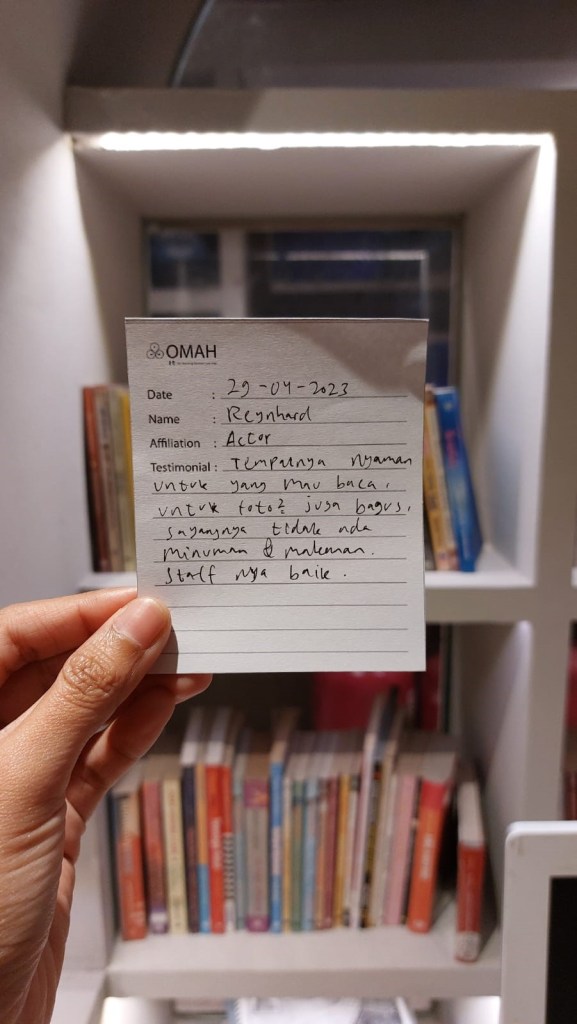 OMAH
Date : 29-04-2023
Name : Reynhard
Affiliation : Actor
Testimonial : Tempatnya nyaman
untuk yang mau baca,
untuk foto2 juga bagus,
sayangnya tidak ada
minuman & makanan.
Staff nya baik.